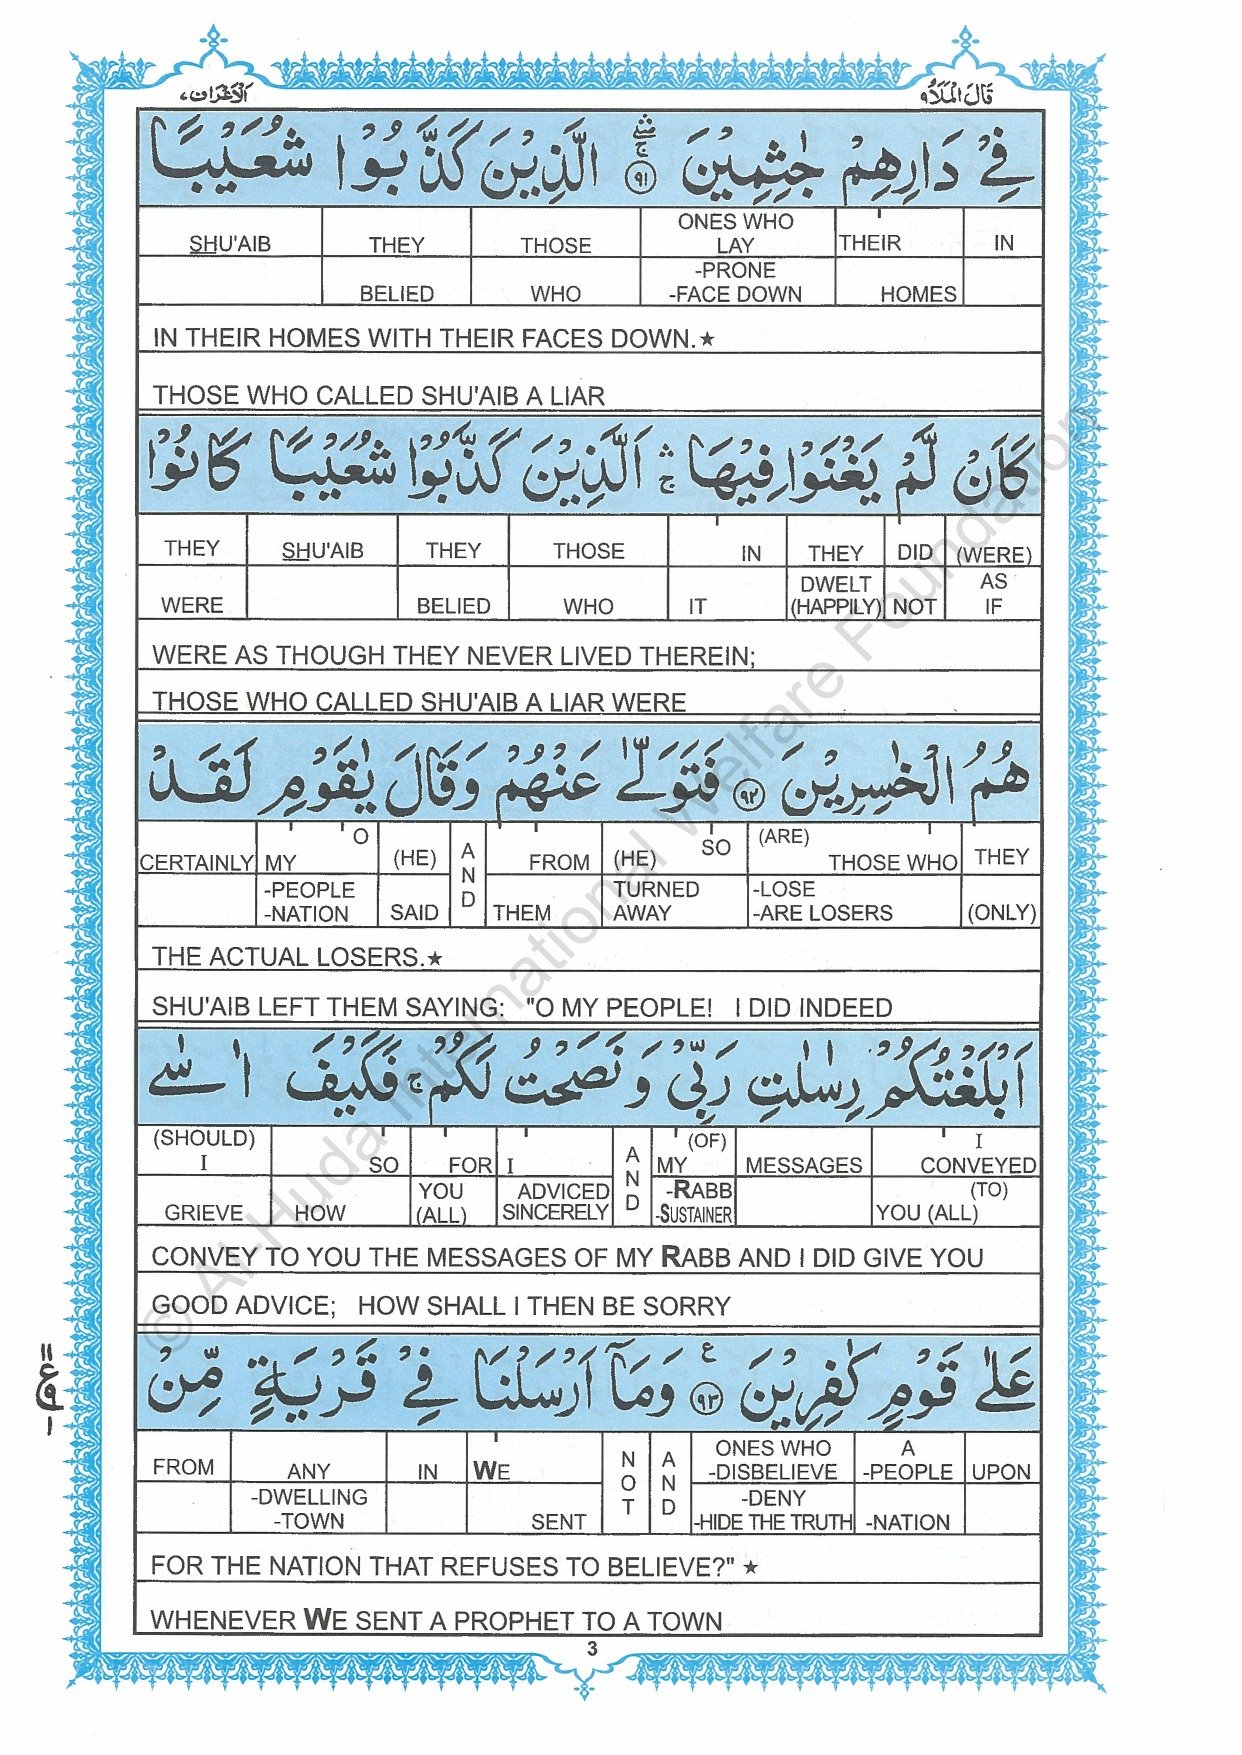 الاعراف ٧
قال الملا ٩
فِيْ دَارِهِمْ جٰثِمِيْنَ ۹۱ الَّذِيْنَ كَذَّبُوْا شُعَيْبًا
SHU'AIB THEY THOSE ONES WHO LAY THEIR IN
BELIED WHO -PRONE -FACE DOWN HOMES
IN THEIR HOMES WITH THEIR FACES DOWN.★
THOSE WHO CALLED SHU'AIB A LIAR
كَاَنْ لَّمْ يَغْنَوْا فِيْهَا ۛۚ اَلَّذِيْنَ كَذَّبُوْا شُعَيْبًا كَانُوْا
THEY SHU'AIB THEY THOSE IN THEY DID (WERE)
WERE BELIED WHO IT DWELT (HAPPILY) NOT AS IF
WERE AS THOUGH THEY NEVER LIVED THEREIN;
THOSE WHO CALLED SHU'AIB A LIAR WERE
هُمُ الْخٰسِرِيْنَ ۹۲ فَتَوَلّٰى عَنْهُمْ وَقَالَ يٰقَوْمِ لَقَدْ
CERTAINLY MY O (HE) AND FROM (HE) SO (ARE) THOSE WHO THEY
-PEOPLE -NATION SAID THEM TURNED AWAY -LOSE -ARE LOSERS (ONLY)
THE ACTUAL LOSERS.★
SHU'AIB LEFT THEM SAYING: "O MY PEOPLE! I DID INDEED
اَبْلَغْتُكُمْ رِسٰلٰتِ رَبِّيْ وَنَصَحْتُ لَكُمْ ۚ فَكَيْفَ اٰسٰى
(SHOULD) I SO FOR I AND (OF) MY MESSAGES I CONVEYED
GRIEVE HOW YOU (ALL) ADVICED SINCERELY -RABB -SUSTAINER (TO) YOU (ALL)
CONVEY TO YOU THE MESSAGES OF MY RABB AND I DID GIVE YOU
GOOD ADVICE; HOW SHALL I THEN BE SORRY
عَلٰى قَوْمٍ كٰفِرِيْنَ ۹۳ ع وَمَآ اَرْسَلْنَا فِيْ قَرْيَةٍ مِّنْ
FROM ANY IN WE NOT AND ONES WHO -DISBELIEVE A -PEOPLE UPON
-DWELLING -TOWN SENT -DENY -HIDE THE TRUTH -NATION
FOR THE NATION THAT REFUSES TO BELIEVE?" ★
WHENEVER WE SENT A PROPHET TO A TOWN
3
© Al-Huda International Welfare Foundation